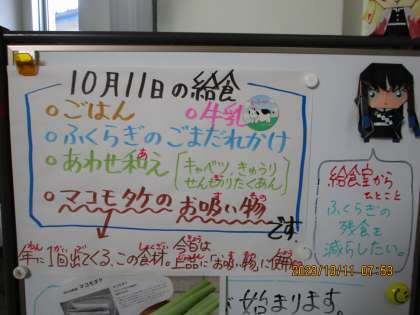 10月11日の給食
ごはん
牛乳
ふくらぎのごまだれかけ
あわせ和え
あ
キャベツ、きゅうり
せんぎりたくあん
マコモタケのお吸い物
です。
年に1回出てくる、この食材。今日は
上品に「お吸い物」に解
給食室から
ひとこと
ふくらぎの
残食を
減らしたい。
マコモタケ
始まります。
2023/10/11 07:53